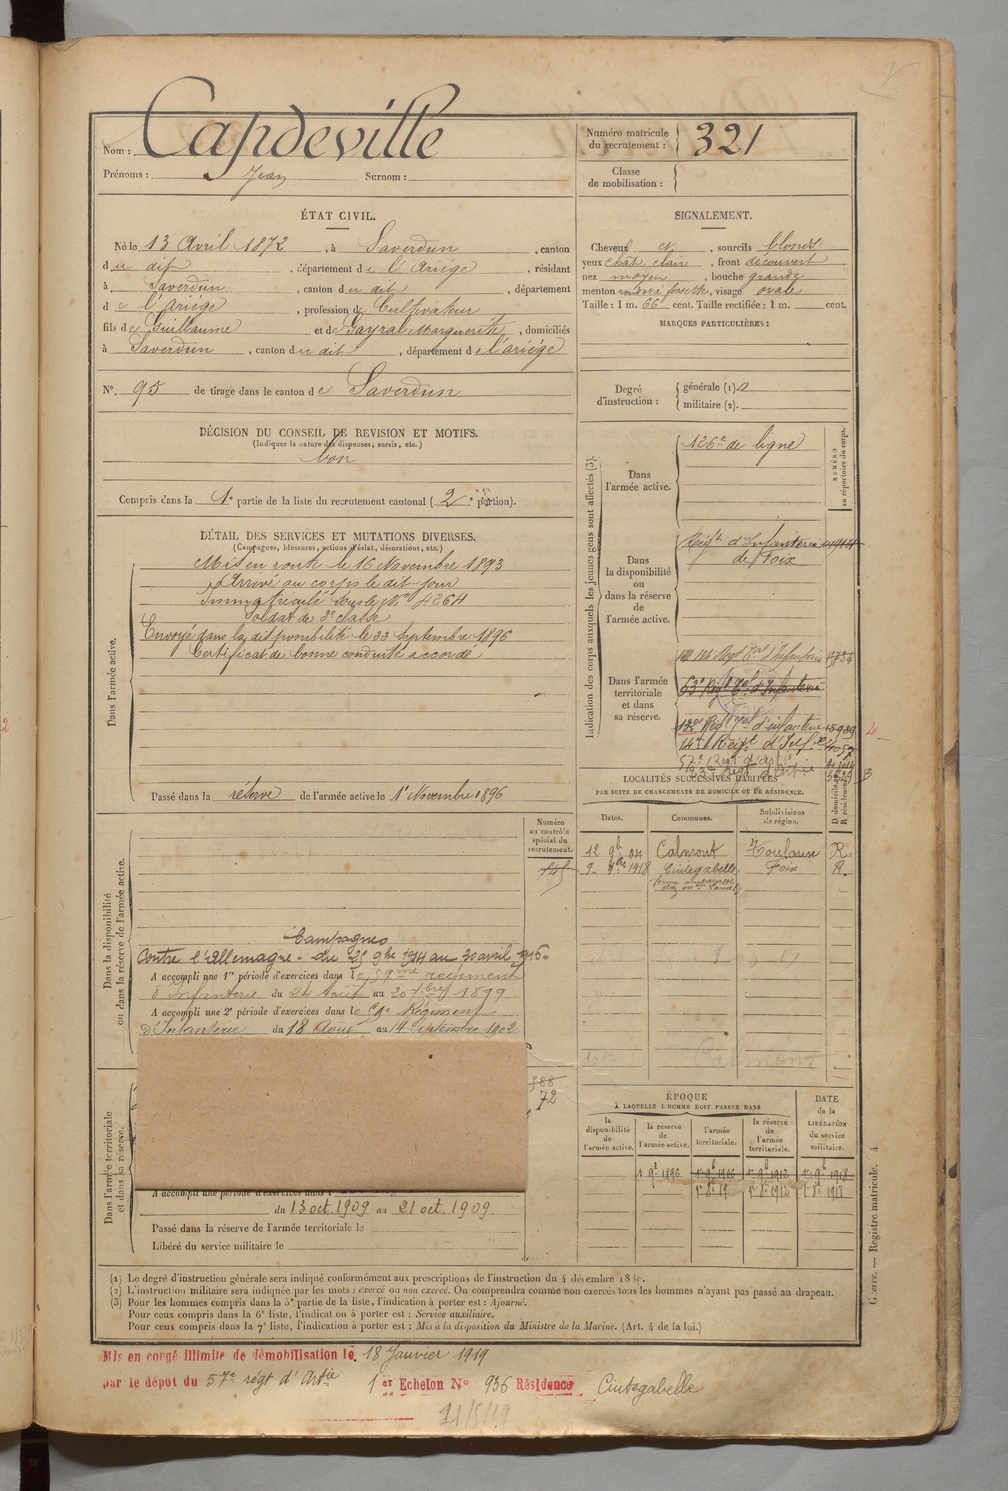 Nom : Capdeville
Prénoms : Jean Surnom :
Numéro matricule du recrutement : 321
Classe de mobilisation :
ÉTAT CIVIL.
Né le 13 Avril 1872, à Saverdun, canton
du dit, département de l'Ariége, résidant
à Saverdun, canton du dit, département
de l'Ariége, profession de Cultivateur
fils de Guillaume et de Gayral Marguerite, domiciliés
à Saverdun, canton du dit, département de l'ariége
N° 95 de tirage dans le canton de Saverdun
SIGNALEMENT.
Cheveux et, sourcils blonds
yeux chat clair, front découvert
nez moyen, bouche grande
menton rond à fossette, visage ovale
Taille : 1 m. 66 cent. Taille rectifiée : 1 m. cent.
MARQUES PARTICULIÈRES :
Degré d'instruction : générale (1). militaire (2).
DÉCISION DU CONSEIL DE REVISION ET MOTIFS.
(Indiquer la nature des dispenses, sursis, etc.)
bon
Compris dans la 1e partie de la liste du recrutement cantonal (2e portion).
DÉTAIL DES SERVICES ET MUTATIONS DIVERSES.
(Campagnes, blessures, actions d'éclat, décorations, etc.)
Dans l'armée active.
Mis en route le 16 Novembre 1893
Arrivé au corps le dit jour
Immatriculé sous le N° 4264
Soldat de 2e classe
Envoyé dans la disponibilité le 23 Septembre 1896
Certificat de bonne conduite accordé
Passé dans la réserve de l'armée active le 1er Novembre 1896
Indication des corps auxquels les jeunes gens sont affectés (3).
NUMÉRO au répertoire du corps.
Dans l'armée active.
126e de ligne
Dans la disponibilité ou dans la réserve de l'armée active.
Regt d'Infanterie
de Foix
Dans l'armée territoriale et dans sa réserve.
Regt Tal d'Infanterie
63e Regt Tal d'Infanterie
132e Regt Tal d'infanterie 15989
14e Regt d'Inf.ie
57e Regt d'artie
LOCALITÉS SUCCESSIVES HABITÉES
PAR SUITE DE CHANGEMENTS DE DOMICILE OU DE RÉSIDENCE.
D domicile. R résidence.
Dates. Communes. Subdivisions de région.
12 9b 04 Calmont Toulouse R.
9bre 1918 Cintegabelle Foix R.
Numéro au contrôle spécial du recrutement.
Dans la disponibilité ou dans la réserve de l'armée active.
Campagnes
Contre l'Allemagne - du 25 9bre 1914 au 30 avril 1916.
A accompli une 1re période d'exercices dans le 59me régiment
d'Infanterie du 24 Août au 20 7bre 1899
A accompli une 2e période d'exercices dans le Régiment
D'Infanterie du 18 Aout au 14 Septembre 1902
72
Dans l'armée territoriale et dans sa réserve.
A accompli une période d'exercices dans
du 13 oct. 1909 au 21 oct. 1909.
Passé dans la réserve de l'armée territoriale le
Libéré du service militaire le
ÉPOQUE
À LAQUELLE L'HOMME DOIT PASSER DANS
DATE de la LIBÉRATION du service militaire.
la disponibilité de l'armée active. la réserve de l'armée active. l'armée territoriale. la réserve de l'armée territoriale.
1 9b 1896
(1) Le degré d'instruction générale sera indiqué conformément aux prescriptions de l'instruction du 4 décembre
(2) L'instruction militaire sera indiquée par les mots : exercé ou non exercé. On comprendra comme non exercés tous les hommes n'ayant pas passé au drapeau.
(3) Pour les hommes compris dans la 5e partie de la liste, l'indication à porter est : Ajourné.
Pour ceux compris dans la 6e liste, l'indication à porter est : Service auxiliaire.
Pour ceux compris dans la 7e liste, l'indication à porter est : Mis à la disposition du Ministre de la Marine. (Art. 4 de la loi.)
Guerre. — Registre matricule. 4
Mis en congé illimité de démobilisation le 18 Janvier 1919
par le dépot du 57e régt d'Artie 1er Echelon N° 936 Résidence Cintegabelle
21/5/19